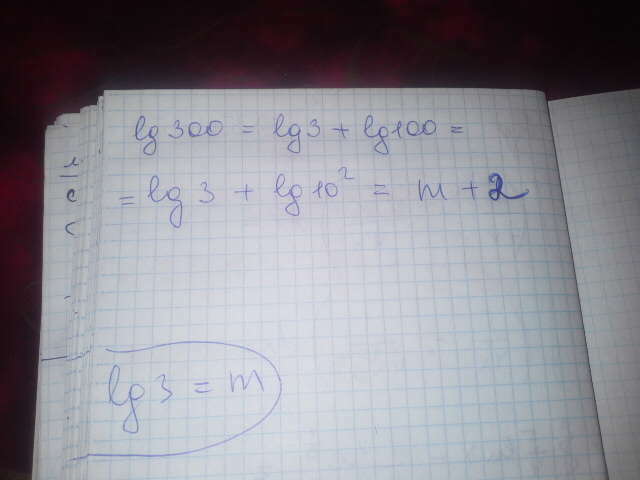 lg 300 = lg 3 + lg 100 =
= lg 3 + lg 10² = m + 2
lg 3 = m